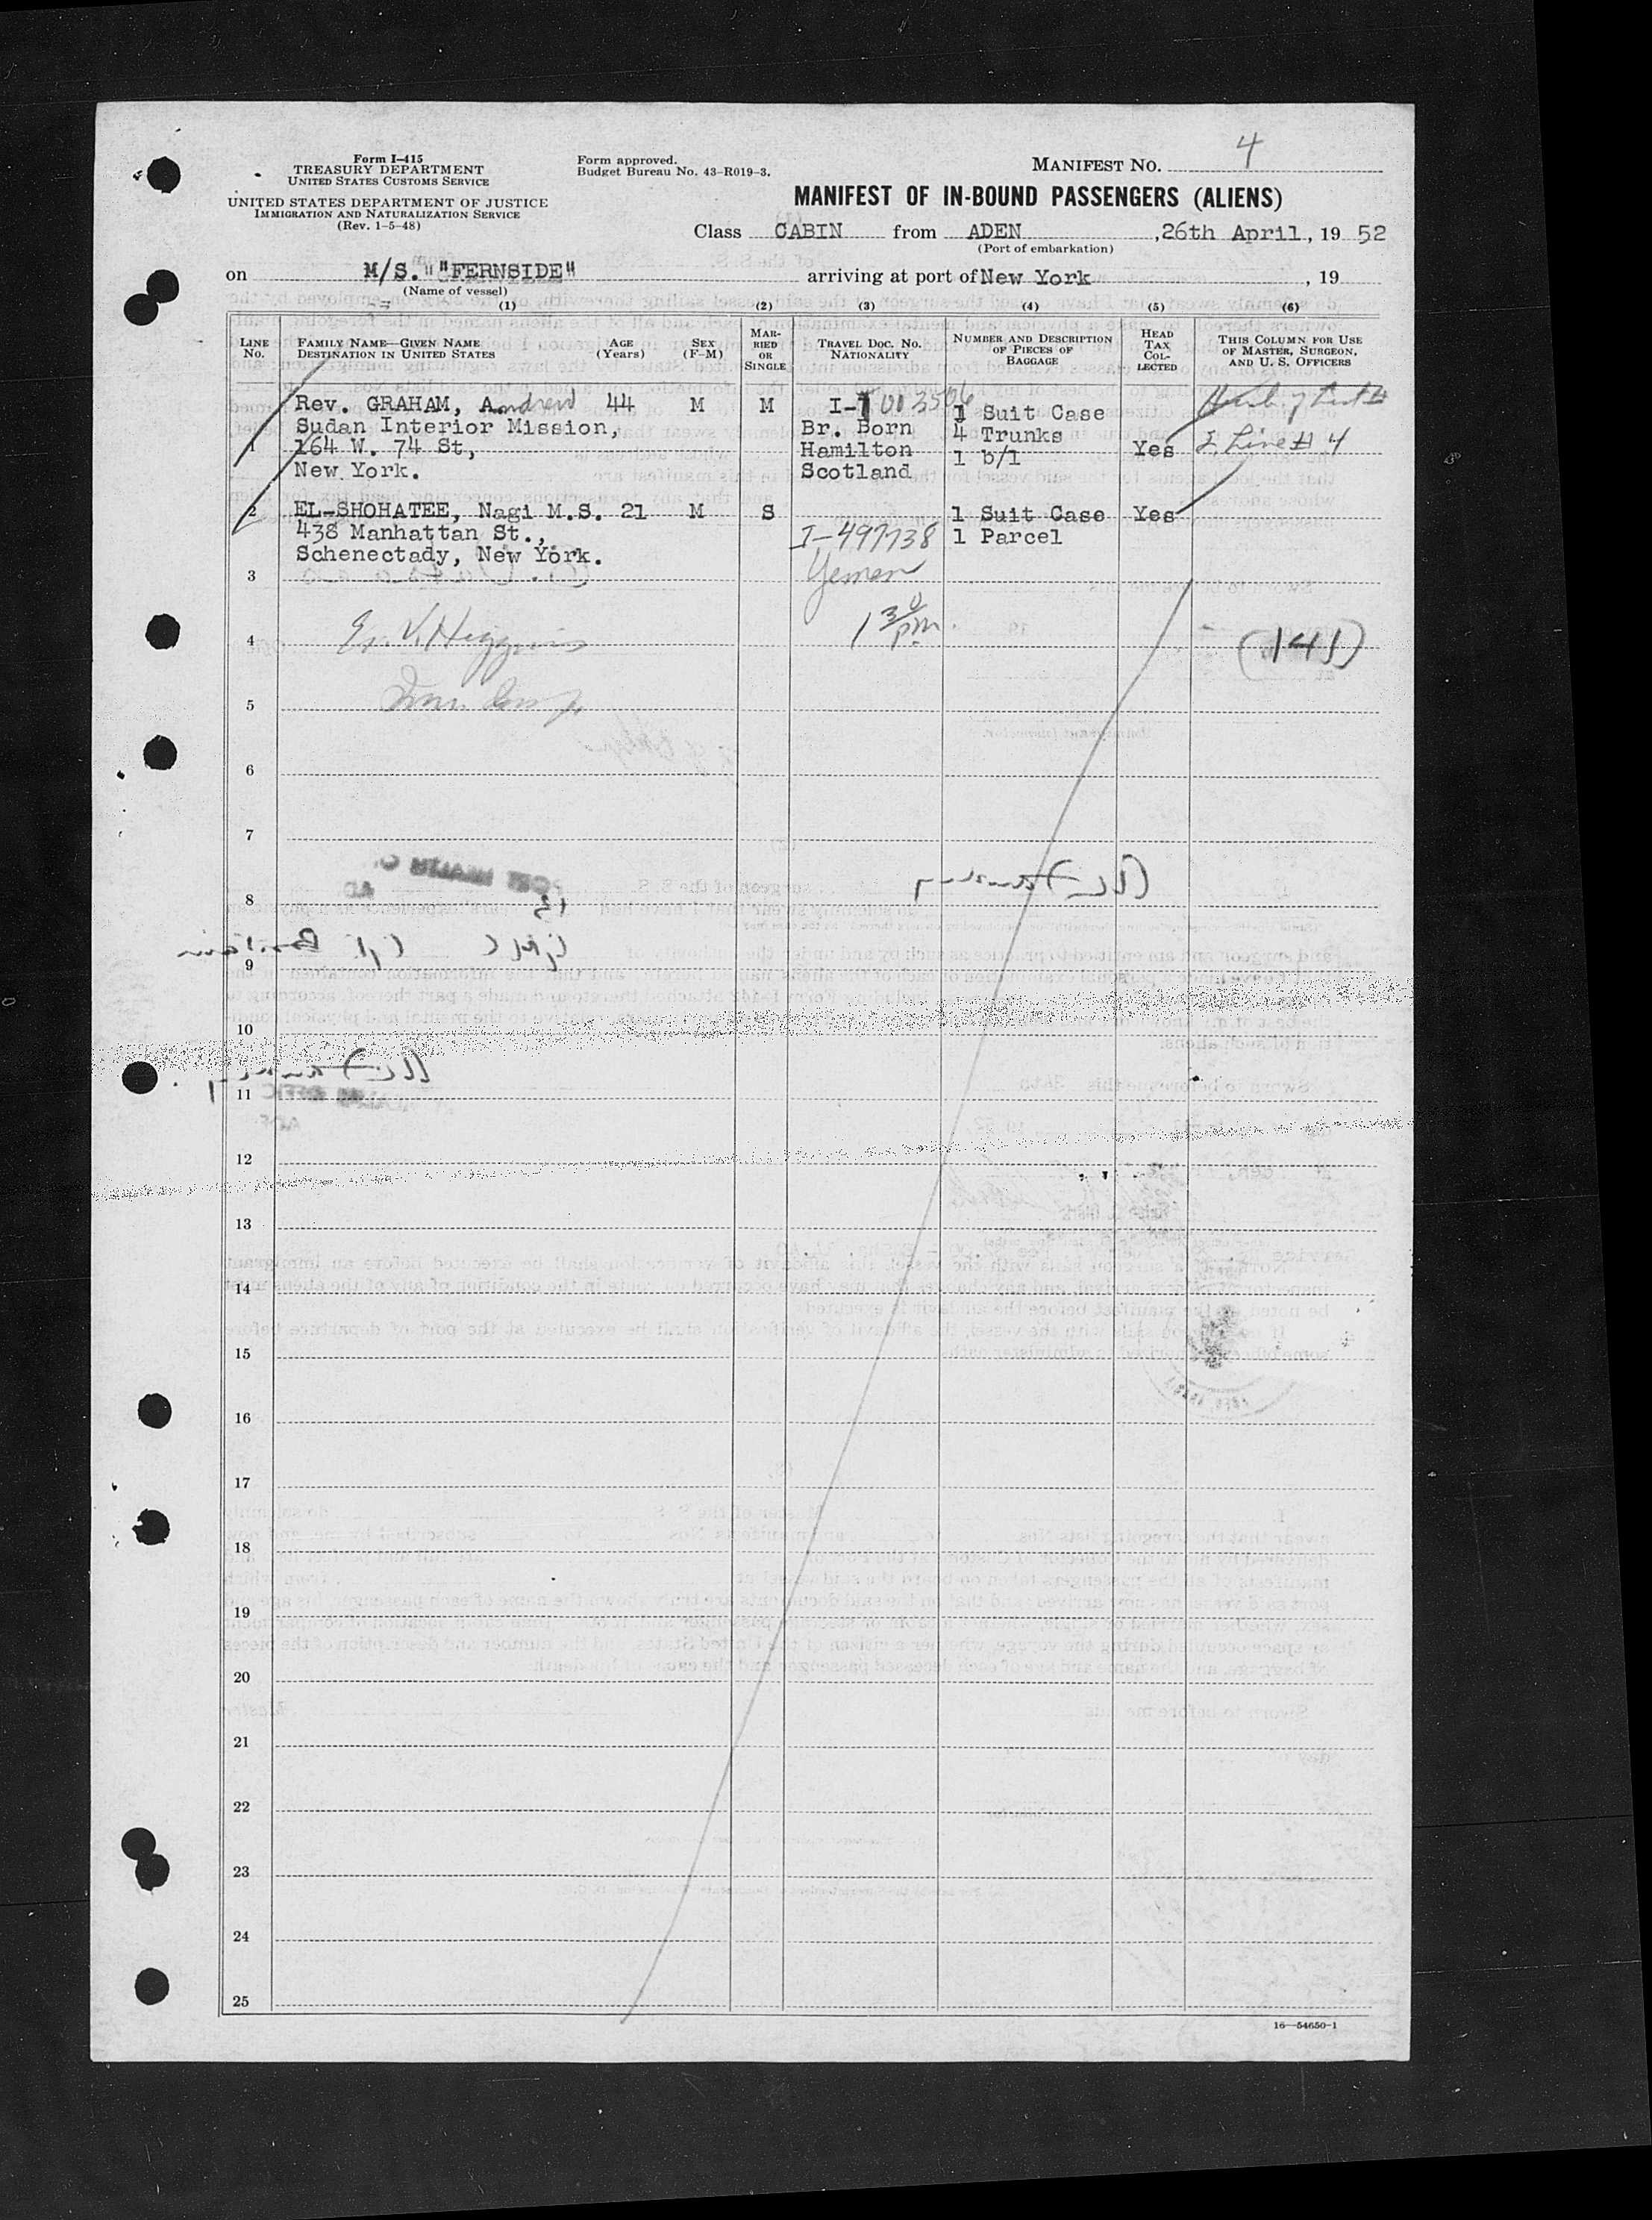 Form I-415
TREASURY DEPARTMENT
UNITED STATES CUSTOMS SERVICE
UNITED STATES DEPARTMENT OF JUSTICE
IMMIGRATION AND NATURALIZATION SERVICE
(Rev. 1-5-48)
Form approved.
Budget Bureau No. 43-R019-3.
MANIFEST NO. 4
MANIFEST OF IN-BOUND PASSENGERS (ALIENS)
Class CABIN from ADEN, 26th April, 19 52
(Port of embarkation)
on M/S. "FERNSIDE" arriving at port of New York, 19
(Name of vessel)
(1) (2) (3) (4) (5) (6)
LINE No.
FAMILY NAME—GIVEN NAME
DESTINATION IN UNITED STATES
AGE (Years)
SEX (F-M)
MARRIED OR SINGLE
TRAVEL DOC. NO. NATIONALITY
NUMBER AND DESCRIPTION OF PIECES OF BAGGAGE
HEAD TAX COLLECTED
THIS COLUMN FOR USE OF MASTER, SURGEON, AND U. S. OFFICERS
Rev. GRAHAM, Andrew 44 M M I-1003506 1 Suit Case
Sudan Interior Mission, Br. Born 4 Trunks
1 164 W. 74 St, Hamilton 1 b/l Yes Line # 4
New York. Scotland
2 EL-SHOHATEE, Nagi M.S. 21 M S 1 Suit Case Yes
438 Manhattan St., I-497738 1 Parcel
Schenectady, New York.
3 Yemen
4 Ex. V. Higgins 1 30 pm. (141)
5
6
7
8
9
10
11
12
13
14
15
16
17
18
19
20
21
22
23
24
25
16—54650-1